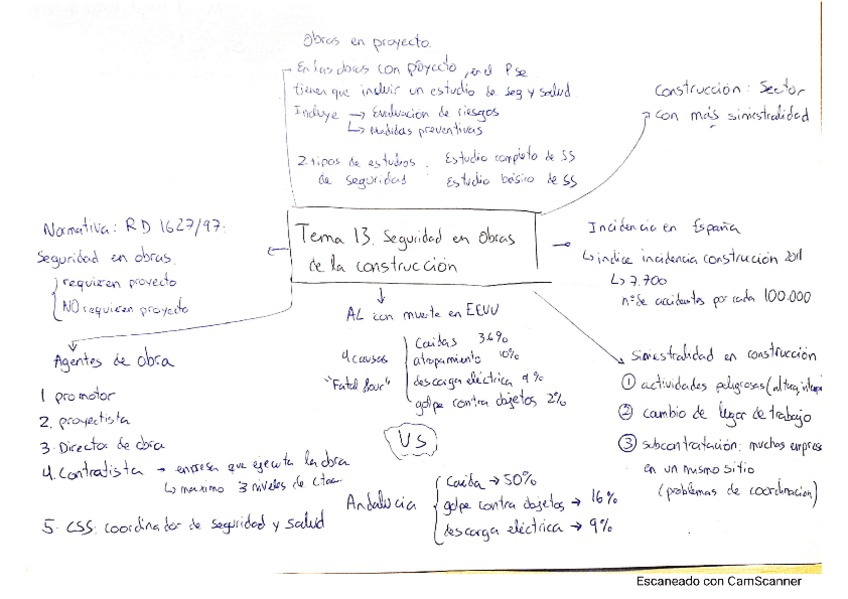 Obras en proyecto.
En las obras con proyecto, en el PSe
tienen que incluir un estudio de seg y salud
Incluye → Evaluación de riesgos
↳ medidas preventivas
2 tipos de estudios : Estudio completo de SS
de seguridad Estudio básico de SS
Construcción: Sector
con más siniestralidad
Normativa: RD 1627/97:
Seguridad en obras.
requieren proyecto
NO requieren proyecto
Tema 13. Seguridad en obras
de la construcción
Incidencia en España
↳ indice incidencia construcción 2011
↳ 7.700
nº de accidentes por cada 100.000
AL con muerte en EEUU
4 causas
"Fatal four"
Caidas 36%
atrapamiento 10%
descarga eléctrica 9%
golpe contra objetos 2%
VS
Andalucia
Caida → 50%
golpe contra objetos → 16%
descarga eléctrica → 9%
Agentes de obra
1 promotor
2. proyectista
3. Director de obra
4. Contratista → empresa que ejecuta la obra
↳ maximo 3 niveles de
5. CSS: coordinador de seguridad y salud
siniestralidad en construcción
① actividades peligrosas (altura,
② cambio de lugar de trabajo
③ subcontratación: muchas empres
en un mismo sitio
(problemas de coordinacion)
Escaneado con CamScanner